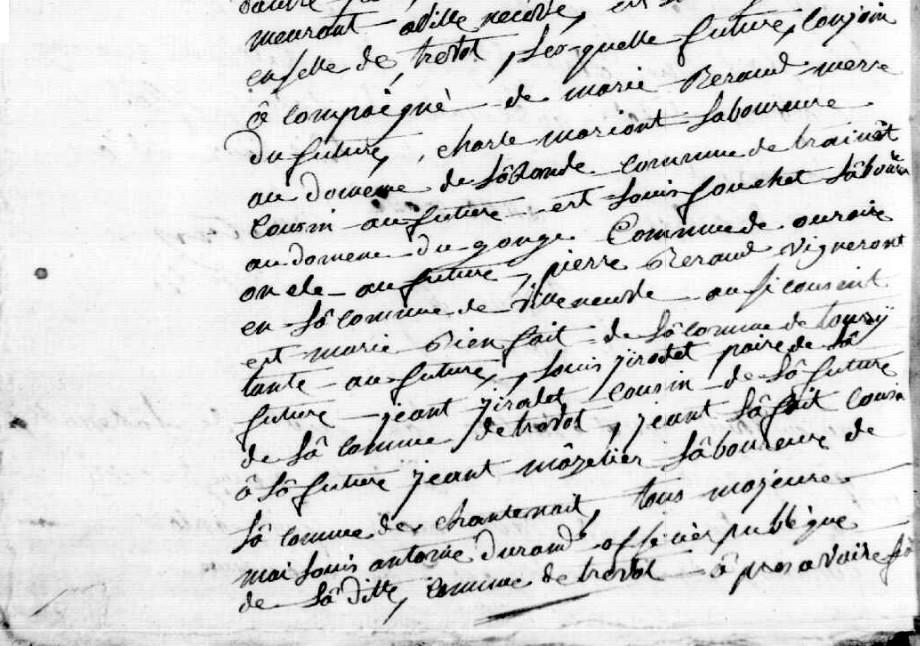 meurant a ville necerve, est
enfelle de trevot, Les quelle future, Conjoin
ê Compaêgné de marie Reraud merre
Du future, charle mariont Laboureure
au domene de Lôlande commune de trainêt
Cousin au future est Louis fouchet Lâboure
au domene du gonge Commune de ouroire
oncle au future, pierre Reraud vigneront
en Lâ comune de Villeneuvde au si cousint
est marie Rienfait de Lâ comune de toury
tante au future, Louis jirodet paire de Lâ
future jeant jirodet cousin de Lâ future
de Lâ commune de trevot, jeant Lâfait cousin
â Lâ future jeant mâzelier Lâboureure de
Lâ comune de chantenait, tous majeure
moi Louis antoine Durand officier publêque
de Lâ ditte, comune de trevot â pres avoire fô